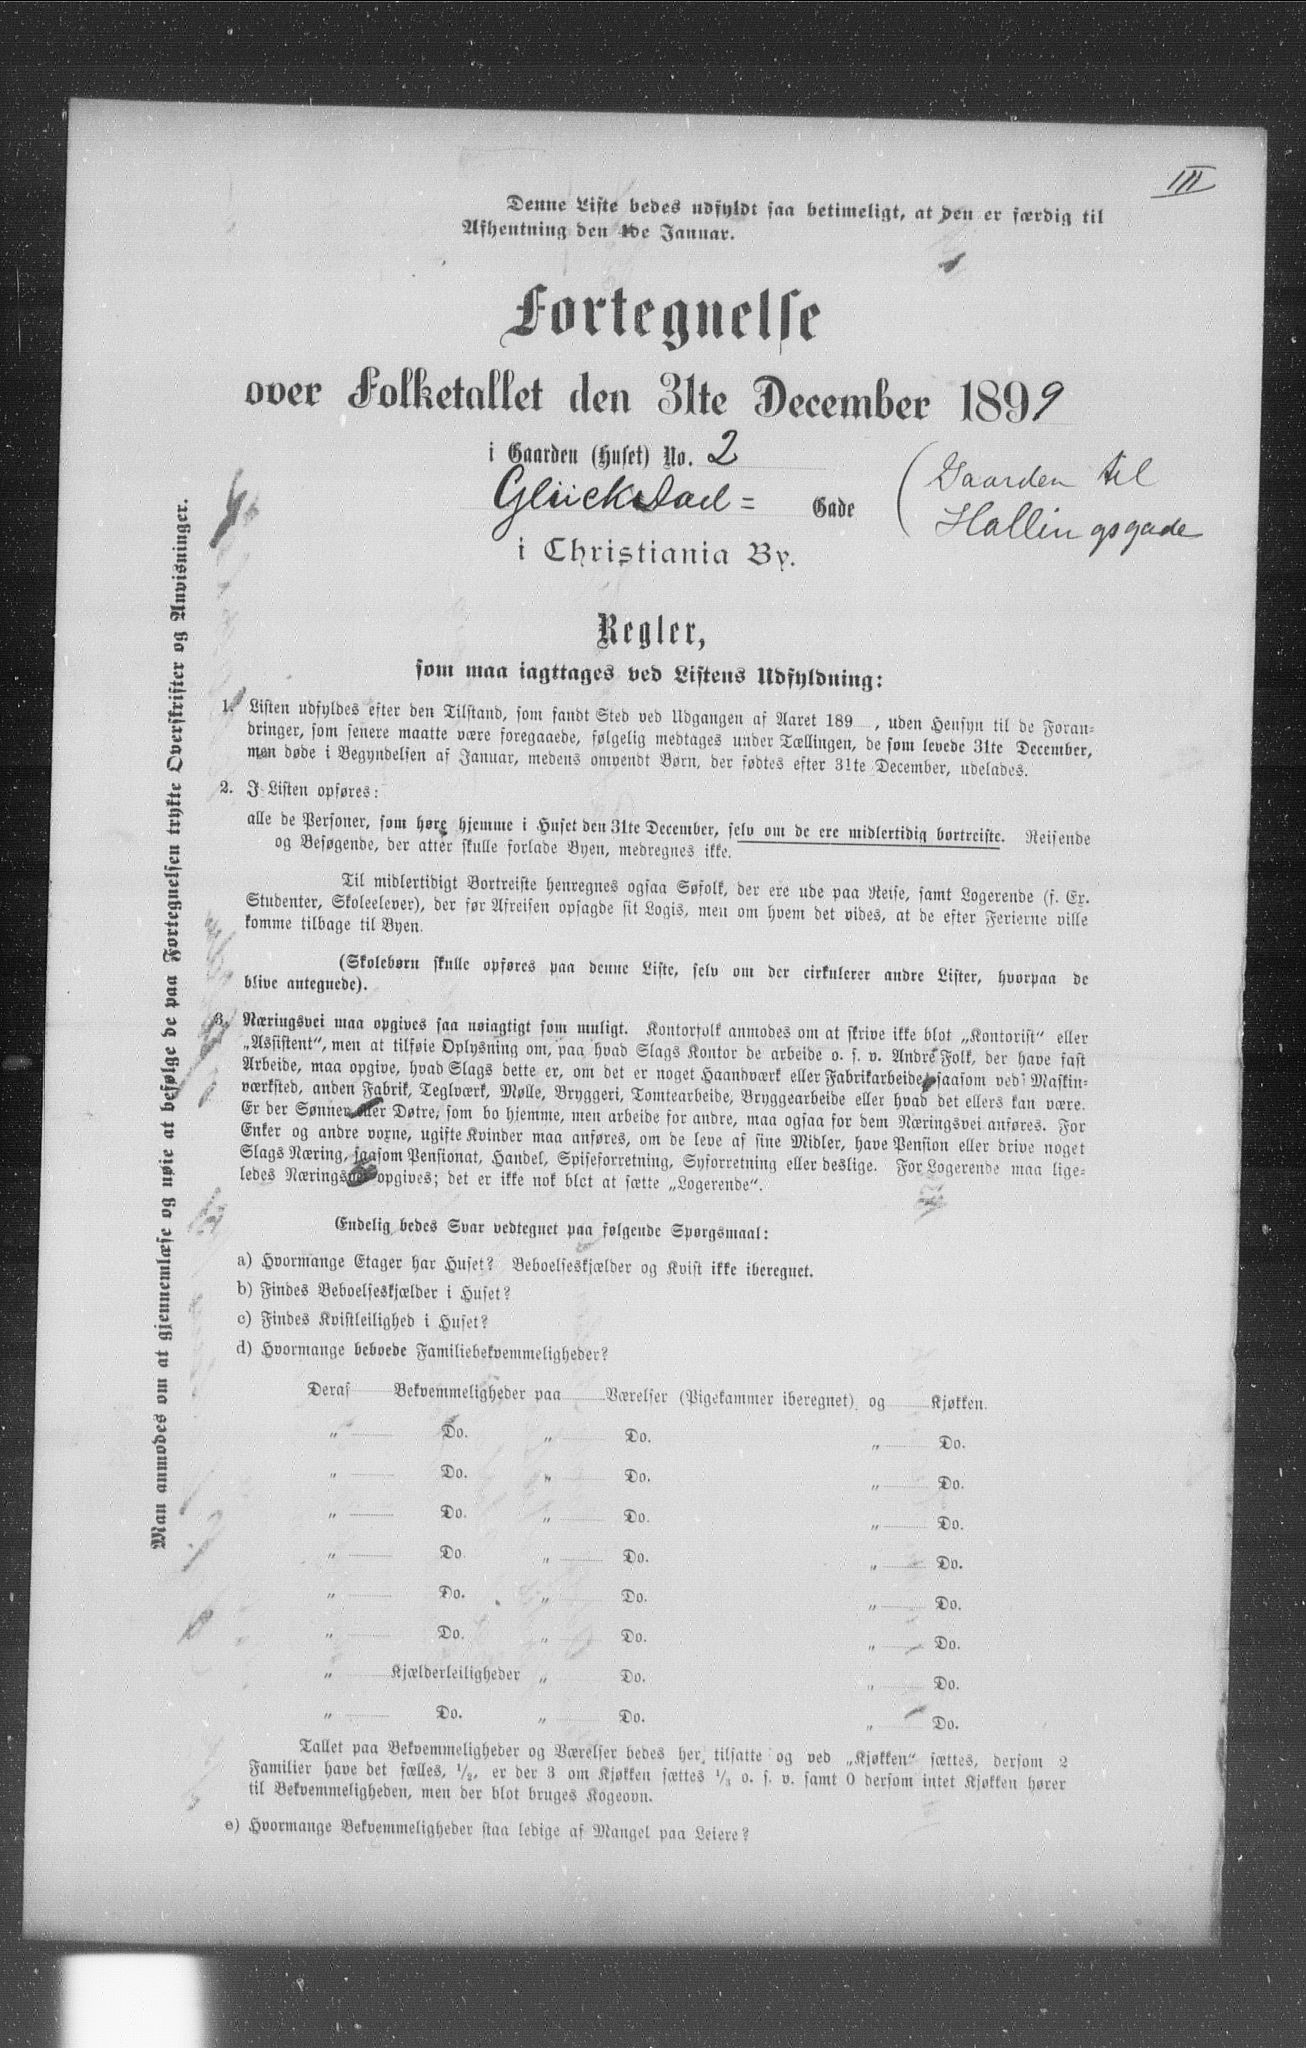 III
Denne Liste bedes udfyldt saa betimeligt, at den er færdig til
Afhentning den 1de Januar.
Fortegnelse
over Folketallet den 31te December 1899
i Gaarden (Huset) No. 2
Glückstad= Gade
(Gaarden til
Hallingsgade
i Christiania By.
Regler,
som maa iagttages ved Listens Udfyldning:
1. Listen udfyldes efter den Tilstand, som fandt Sted ved Udgangen af Aaret 189 , uden Hensyn til de Foran-
dringer, som senere maatte være foregaaede, følgelig medtages under Tællingen, de som levede 31te December,
men døde i Begyndelsen af Januar, medens omvendt Børn, der fødtes efter 31te December, udelades.
2. I Listen opføres:
alle de Personer, som høre hjemme i Huset den 31te December, selv om de ere midlertidig bortreiste. Reisende
og Besøgende, der atter skulle forlade Byen, medregnes ikke.
Til midlertidigt Bortreiste henregnes ogsaa Søfolk, der ere ude paa Reise, samt Logerende (f. Ex.
Studenter, Skoleelever), der før Afreisen opsagde sit Logis, men om hvem det vides, at de efter Ferierne ville
komme tilbage til Byen.
(Skolebørn skulle opføres paa denne Liste, selv om der cirkulerer andre Lister, hvorpaa de
blive antegnede).
3. Næringsvei maa opgives saa nøiagtigt som muligt. Kontorfolk anmodes om at skrive ikke blot „Kontorist“ eller
„Assistent“, men at tilføie Oplysning om, paa hvad Slags Kontor de arbeide o. s. v. Andre Folk, der have fast
Arbeide, maa opgive, hvad Slags dette er, om det er noget Haandværk eller Fabrikarbeide, saasom ved Maskin-
værksted, anden Fabrik, Teglværk, Mølle, Bryggeri, Tomtearbeide, Bryggearbeide eller hvad det ellers kan være.
Er der Sønner eller Døtre, som bo hjemme, men arbeide for andre, maa ogsaa for dem Næringsvei anføres. For
Enker og andre voxne, ugifte Kvinder maa anføres, om de leve af sine Midler, have Pension eller drive noget
Slags Næring, saasom Pensionat, Handel, Spiseforretning, Syforretning eller deslige. For Logerende maa lige-
ledes Næringsvei opgives; det er ikke nok blot at sætte „Logerende“.
Endelig bedes Svar vedtegnet paa følgende Spørgsmaal:
a) Hvormange Etager har Huset? Beboelseskjælder og Kvist ikke iberegnet.
b) Findes Beboelseskjælder i Huset?
c) Findes Kvistleilighed i Huset?
d) Hvormange beboede Familiebekvemmeligheder?
Deraf Bekvemmeligheder paa Værelser (Pigekammer iberegnet) og Kjøkken.
„ Do. „ Do. „ Do.
„ Do. „ Do. „ Do.
„ Do. „ Do. „ Do.
„ Do. „ Do. „ Do.
„ Do. „ Do. „ Do.
„ Do. „ Do. „ Do.
„ Kjælderleiligheder „ Do. „ Do.
„ Do. „ Do. „ Do.
Tallet paa Bekvemmeligheder og Værelser bedes her tilsatte og ved „Kjøkken“ sættes, dersom 2
Familier have det fælles, 1/2, er der 3 om Kjøkken sættes 1/3 o. s. v. samt 0 dersom intet Kjøkken hører
til Bekvemmeligheden, men der blot bruges Kogeovn.
e) Hvormange Bekvemmeligheder staa ledige af Mangel paa Leiere?
Man anmodes om at gjennemlæse og nøie at befølge de paa Fortegnelsen trykte Overskrifter og Anvisninger.